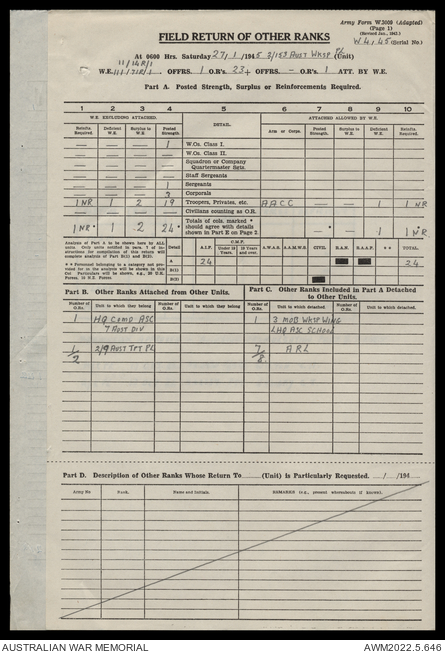 Army Form W.3009 (Adapted)
(Page 1)
(Revised Jan., 1943.)
W4/45 (Serial No.)
FIELD RETURN OF OTHER RANKS
At 0600 Hrs. Saturday 27/1/1945 3/153 AUST WKSP PL (Unit)
W.E. OFFRS. 1 O.R's. 23+ OFFRS. — O.R's. 1 ATT. BY W.E.
Part A. Posted Strength, Surplus or Reinforcements Required.
1 2 3 4 5 6 7 8 9 10
W.E. EXCLUDING ATTACHED. DETAIL. ATTACHED ALLOWED BY W.E.
Reinfts. Required. Deficient W.E. Surplus to W.E. Posted Strength. Arms or Corps. Posted Strength. Surplus to W.E. Deficient W.E. Reinfts. Required.
— — — 1 W.Os. Class I.
— — — — W.Os. Class II.
— — — — Squadron or Company Quartermaster Sgts.
— — — — Staff Sergeants
— — — 1 Sergeants
— — — Corporals
1 NR 1 2 19 Troopers, Privates, etc. AACC — — 1 1 NR
— — — — Civilians counting as O.R.
1 NR * 1 2 24 * Totals of cols. marked * should agree with details shown in Part E on Page 2. — * — 1 1 NR *
Analysis of Part A to be shown here by ALL units. Detail A.I.F. C.M.F. Under 19 Years 19 Years and over. A.W.A.S. A.A.M.W.S. CIVIL R.A.N. R.A.A.F. * * TOTAL.
A 24 24
B(1)
B(2)
Part B. Other Ranks Attached from Other Units.
Part C. Other Ranks Included in Part A Detached to Other Units.
Number of O.Rs. Unit to which they belong Number of O.Rs. Unit to which they belong Number of O.Rs. Unit to which detached. Number of O.Rs. Unit to which detached.
1 HQ COMD ASC 1 3 MOB WKSP WING
7 AUST DIV LHQ ASC SCHOOL
1 2/9 AUST TPT PL 7 ARL
2 8
Part D. Description of Other Ranks Whose Return To (Unit) is Particularly Requested. / /194
Army No Rank. Name and Initials. REMARKS (e.g., present whereabouts if known).
AUSTRALIAN WAR MEMORIAL
AWM2022.5.646